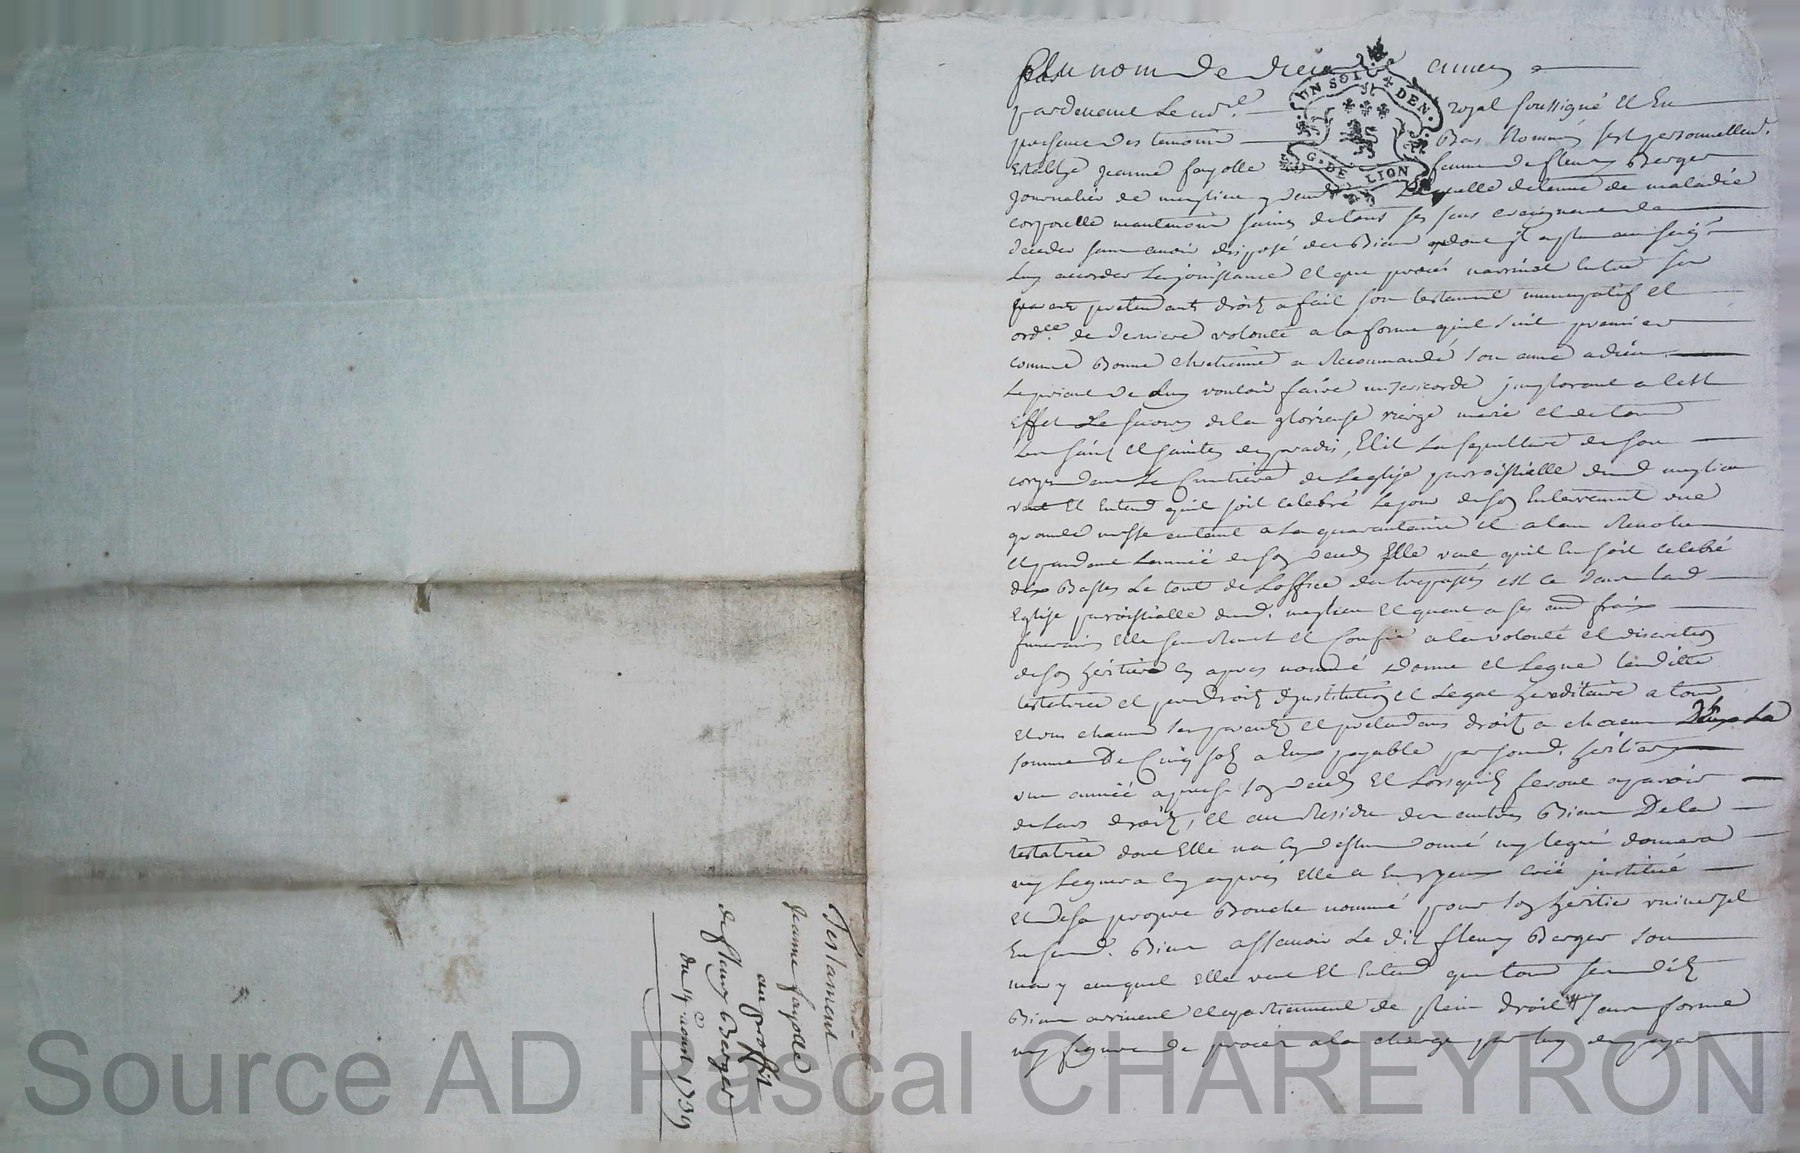 Au nom de dieu amen
pardevant le no.re royal soussigné et En
presence des temoins Bas Nommés sest personnellem.t
Etablye jeanne fayolle femme de fleury Berger
journalier de meylieu laquelle detenue de maladie
corporelle neantmoins saine de tous ses sens craignant de
deceder sans avoir disposé des Biens dont il a plu au seig.r
luy accorder la jouissance et que procés narrivat entre ses
parents pretendants droits a fait son testament nuncupatif et
ord.ce de derniere volonté a la forme quil suit premier
comme Bonne chretienne a Recommandé son ame a dieu
le priant de luy vouloir faire misericorde implorant a cest
effet le secours de la glorieuse vierge marie et de tous
les saints et saintes du paradis, Elit la sepulture de son
corps dans le Cimetiere de leglise parroissialle dud meylieu
veut Et Entend quil soit celebré le jour de son Enterrement une
grande messe autant a la quarantaine et a lan Revolu
et pendant lannée de son deceds Elle veut quil En soit celebré
dix Basses le tout de loffice des trepassés est ce dans lad
Eglise parroissialle dud. meylieu Et quant a ses aud frais
funeraires Elle sen Remet et Confie a la volonté et discretion
de son heritier cy apres nommé donne et Legue lauditte
testatrice et par droit dinstitution et Legat hereditaire a tous
et uns chacuns ses parents et pretendans droits a chacun Deux La
somme De Cinq sols a Eux payable par sond. heritier
une année apres son deceds Et lorsquils seront aparoir
de leurs droits, et au Residu des autres Biens De la
testatrice dont Elle na cy dessus donné ny legué donnera
ny leguera cy apres Elle a Emyeux créé jnstitué
et de sa propre Bouche nommé pour son heritier universel
En send. Biens assavoir le dit fleury Berger son
mary auquel elle veut Et Entend que tous sesdits
Biens arrivent et apartiennent de plein droit sans forme
ny figure de procés a la charge par luy de payer
UN SOL 4 DEN
G. DE LION
Testament
jeanne fayolle
au proffit
de fleury Berger
du aoust 1739
Source AD Pascal CHAREYRON